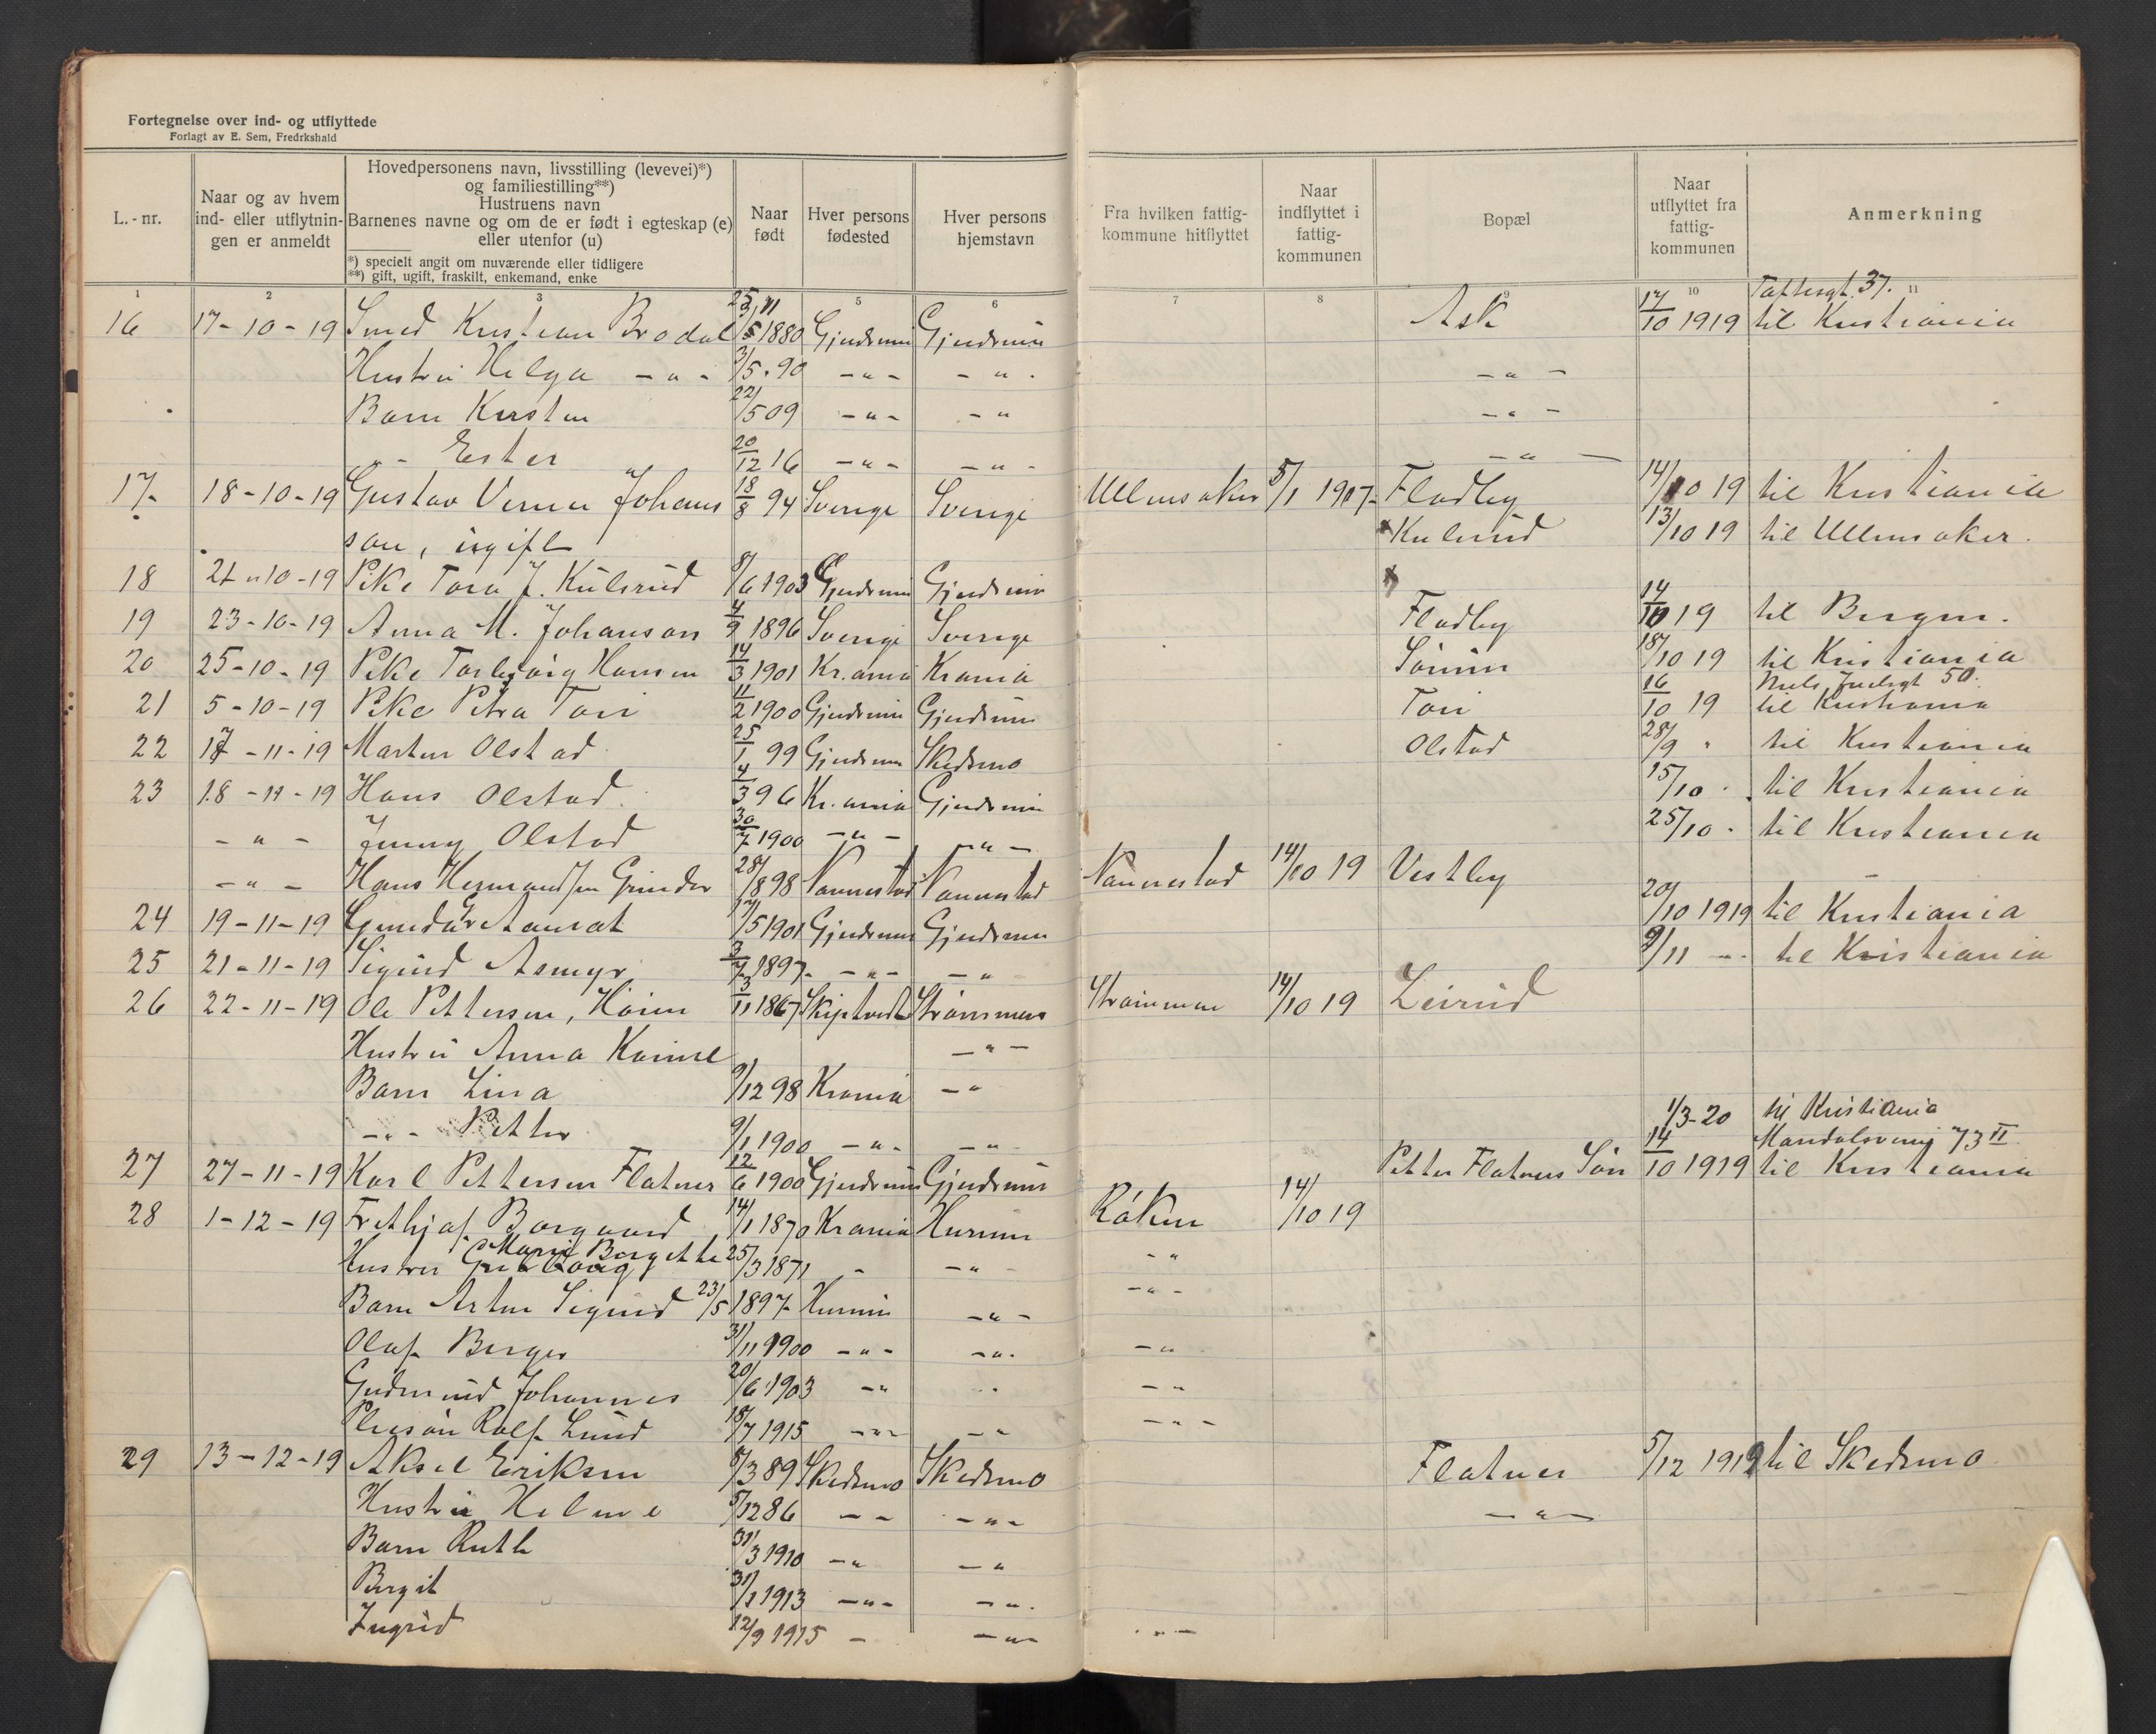 Fortegnelse over ind- og utflyttede
Forlagt av E. Sem, Fredrkshald
L.-nr.
Naar og av hvem ind- eller utflytnin-gen er anmeldt
Hovedpersonens navn, livsstilling (levevei)*)
og familiestilling**)
Hustruens navn
Barnenes navne og om de er født i egteskap (e)
eller utenfor (u)
*) specielt angit om nuværende eller tidligere
**) gift, ugift, fraskilt, enkemand, enke
Naar født
Hver persons fødested
Hver persons hjemstavn
Fra hvilken fattig-kommune hitflyttet
Naar indflyttet i fattig-kommunen
Bopæl
Naar utflyttet fra fattig-kommunen
Anmerkning
1 2 3 5 6 7 8 9 10 11
16 17-10-19 Smed Kristian Brodal 1880 Gjerdrum Gjerdrum Ask 17/10 1919 til Kristiania
Hustru Helga -"- 3/5 90 -"- -"- -"-
Barn Kirsten 22/5 09 -"- -" -"-
"- Ester 20/12 16 -"- -"- -"-
17 18-10-19 Gustav Verner Johans 18/8 94 Sverige Sverige Ullensaker 5/1 1917 Fladby 14/10 19 til Kristiania
son, ugift Kulsrud 13/10 19 til Ullensaker.
18 21-10-19 Pike Tora J. Kulsrud 8/6 1903 Gjerdrum Gjerdrum
19 23-10-19 Anna M. Johanson 4/9 1896 Sverige Sverige Fladby 14/10 19 til Bergen.
20 25-10-19 Pike Torbjørg Hansen 14/3 1901 Kr.ania Krania 18/10 19 til Kristiania
Niels Juelsgt 50.
21 5-10-19 Pike Petra Tori 11/2 1900 Gjerdrum Gjerdrum Tori 16/10 19 til Kristiania
22 17-11-19 Marten Olstad 25/1 99 Gjerdrum Skedsmo Olstad 28/9 " til Kristiania
23 18-11-19 Hans Olstad 4/3 96 Kr.ania Gjerdrum 15/10 til Kristiania
-"- Jenny Olstad 30/7 1900 -"- -"- 25/10 til Kristiania
-"- Hans Hermandsen Grinder 28/8 98 Nannestad Nannestad Nannestad 14/10 19 Vestby
24 19-11-19 Gunda 17/5 1901 Gjerdrum Gjerdrum 20/10 1919 til Kristiania
25 21-11-19 Sigurd Asmyr 3/7 1897 -"- -" 9/11 -"- til Kristiania
26 22-11-19 Ole Pettersen, 3/11 1867 Skiptvedt Strømmen Strømmen 14/10 19 Leirud
Hustru Anna -"-
Barn Lina 9/12 98 Krania -"
-"- Petter 9/1 1900 -"- -"
1/3-20 til Kristiania
Mandalsveig 73 II
27 27-11-19 Karl Pettersen Flatner 12/6 1900 Gjerdrum Gjerdrum Petter Flatners Søn 14/10 1919 til Kristiania
28 1-12-19 Frethjof Borgaard 14/1 1870 Krania Hurum Røken 14/10 19
Hustru Marie Borgette 25/3 1871 - -"- -"
Barn Artur Sigurd 23/5 1897 Hurum -"- -"-
Olaf Birger 31/11 1900 -"- -"- -"
Gudmund Johannes 20/6 1903 -" " -"
Pleisøn Rolf Lund 18/7 1915 -"- -" -"-
29 13-12-19 Aksel Eriksen 8/3 89 Skedsmo Skedsmo Flatner 5/12 1919 til Skedsmo
Hustru Helme 5/12 86 - - -"- -"-
Barn Ruth 31/3 1910 -" -"
Birgit 31/1 1913 -"- -"-
Ingrid 12/9 1915 - -"- -"-